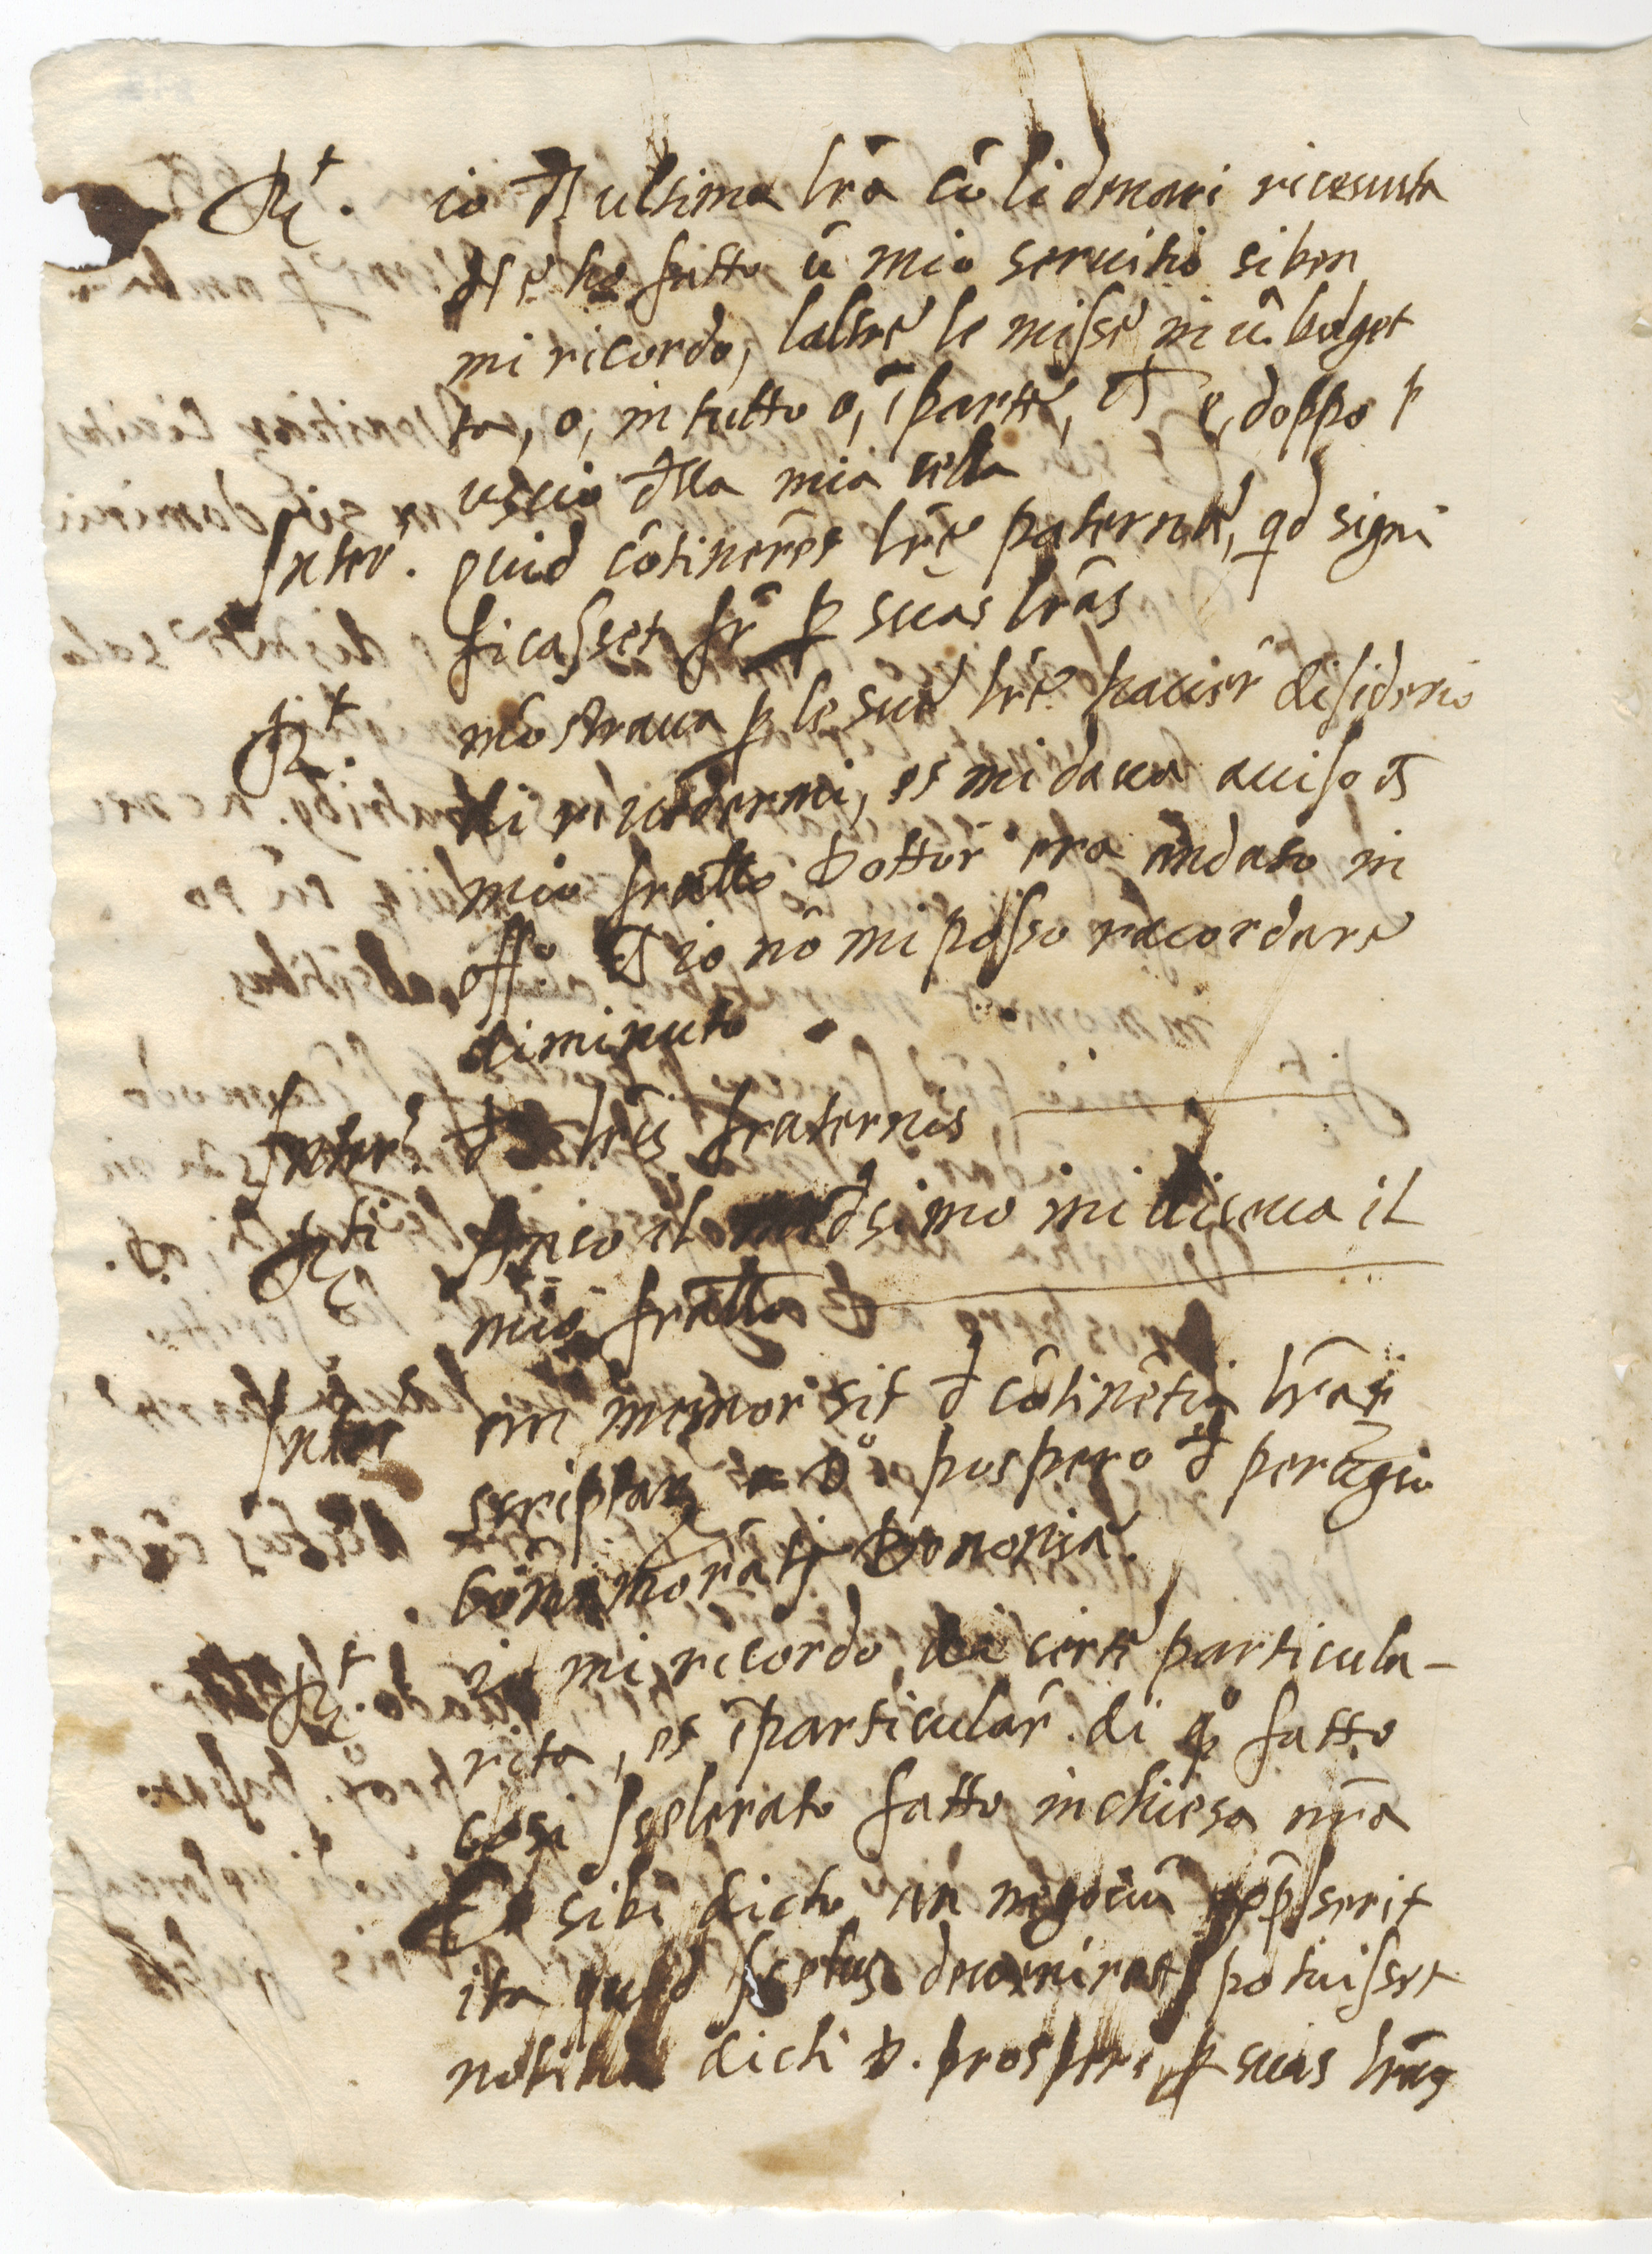 Rt. io ultima lrã cũ li denari ricevuta
ne ho fatto ũ mio servitio siben
mi ricordo, laltre le misse in ũ bolget
ta, o, in tutto o, ĩ parte, e, doppo l
uscio dlla mia cella
Inter. quid cõtinerẽt lrẽ paternẽ, qd signi
ficasset fr̃ p suas lrãs
Rt. mostrava p le sue lrẽ haver disiderio
di rivedermi, et mi dava aviso
mio fratllo Dottor era andato in
offo io nõ mi posso racordare
diminuto
Inter. de lrĩs fraternis
Rti Anco il medsimo mi diceva il
mio fratllo
Inter an memor sit d cõtinẽtia lrãr
scriptar a Do pospero d perugio
comorãti Bononiæ.
Rt. io mi ricordo di certe particula-
rita, et ĩ particular di qo fatto
cosi scelerato fatto in chiesa nrã
Et sibi dicto an negociũ
ita quod scelus devenire potuisset
notitia dicti D. prosperi p suas lrãs